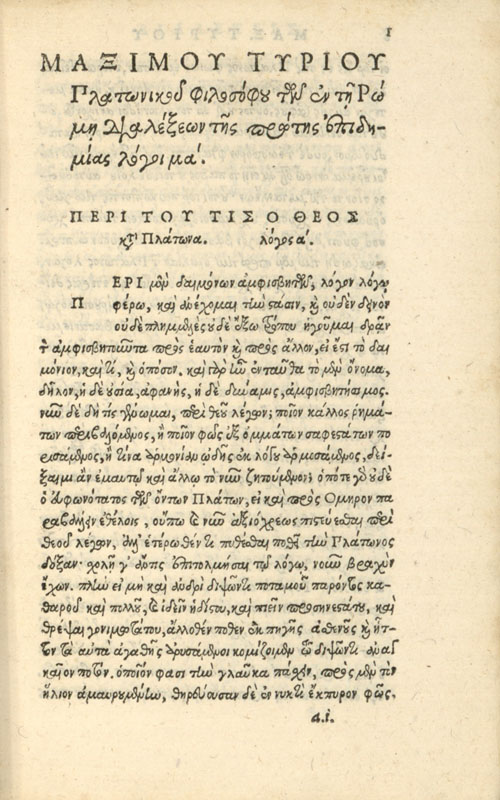 1
ΜΑΞΙΜΟΥ ΤΥΡΙΟΥ
Πλατωνικοῦ φιλοσόφου τῶν ἐν τῇ Ῥώ
μῃ διαλέξεων τῆς πρώτης ἐπιδη-
μίας λόγοι μα΄.
ΠΕΡΙ ΤΟΥ ΤΙΣ Ο ΘΕΟΣ
κτ̀ Πλάτωνα. λόγος α΄.
ΠΕΡΙ μὲν δαιμόνων ἀμφισβητεῖν, λόγον λόγῳ
φέρω, καὶ ἀνέχομαι τὴν στάσιν, καὶ οὐδὲν δεινὸν
οὐδὲ πλημμελὲς οὐδὲ ἔξω τρόπου ἡγοῦμαι δρᾶν
τ ἀμφισβητοῦντα πρὸς ἑαυτὸν καὶ πρὸς ἄλλον, εἰ ἔστι τὸ δαι
μόνιον, καὶ τί, καὶ ὁπόσον. καὶ γὰρ ἐνταῦθα τὸ μὲν ὄνομα,
δῆλον, ἡ δὲ οὐσία, ἀφανὴς, ἡ δὲ δύναμις, ἀμφισβητήσιμος.
νῦν δὲ δὴ τίς γένωμαι, περὶ θεοῦ λέγων; ποῖον κάλλος ῥημά-
των περιβαλόμενος, ἢ ποῖον φῶς ἐξ ὀμμάτων σαφεστάτων πο
ρισάμενος, ἢ τίνα ἁρμονίαν ᾠδῆς ἐκ λόγου ἁρμοσάμενος, δεί-
ξαιμι ἂν ἐμαυτῷ καὶ ἄλλῳ τὸ νῦν ζητούμενον; ὁπότε γὰρ οὐδὲ
ὁ εὐφωνότατος τῶν ὄντων Πλάτων, εἰ καὶ πρὸς Ὅμηρον πα
ραβαλεῖν ἐθέλοις, οὔπω τὰ νῦν ἀξιόχρεως πιστεύεσθαι περὶ
θεοῦ λέγων, ἀλλ' ἑτέρωθέν τις πυθέσθαι ποθεῖ τὴν Πλάτωνος
δόξαν· σχολῇ γ' ἄν τις ἐπιτολμήσαι τῷ λόγῳ, νοῦν βραχὺν
ἔχων. πλὴν εἰ μὴ καὶ ἀνδρὶ διψῶντι ποταμοῦ παρόντος κα-
θαροῦ καὶ πολλοῦ, καὶ ἰδεῖν ἡδίστου, καὶ πιεῖν προσηνεστάτου, καὶ
θρέψαι γονιμωτάτου, ἄλλοθέν ποθεν ἐκ πηγῆς ἀσθενοῦς καὶ ἧτ-
τον τὰ αὐτὰ ἀγαθῆς ἀρυσάμενοι κομίζοιμεν τῷ διψῶντι ἀναγ
καῖον ποτόν. ὁποῖόν φασι τὴν γλαῦκα πάσχειν, πρὸς μὲν τὸν
ἥλιον ἀμαυρουμένην, θηρεύουσαν δὲ ἐν νυκτὶ ἔκπυρον φῶς.
a.i.